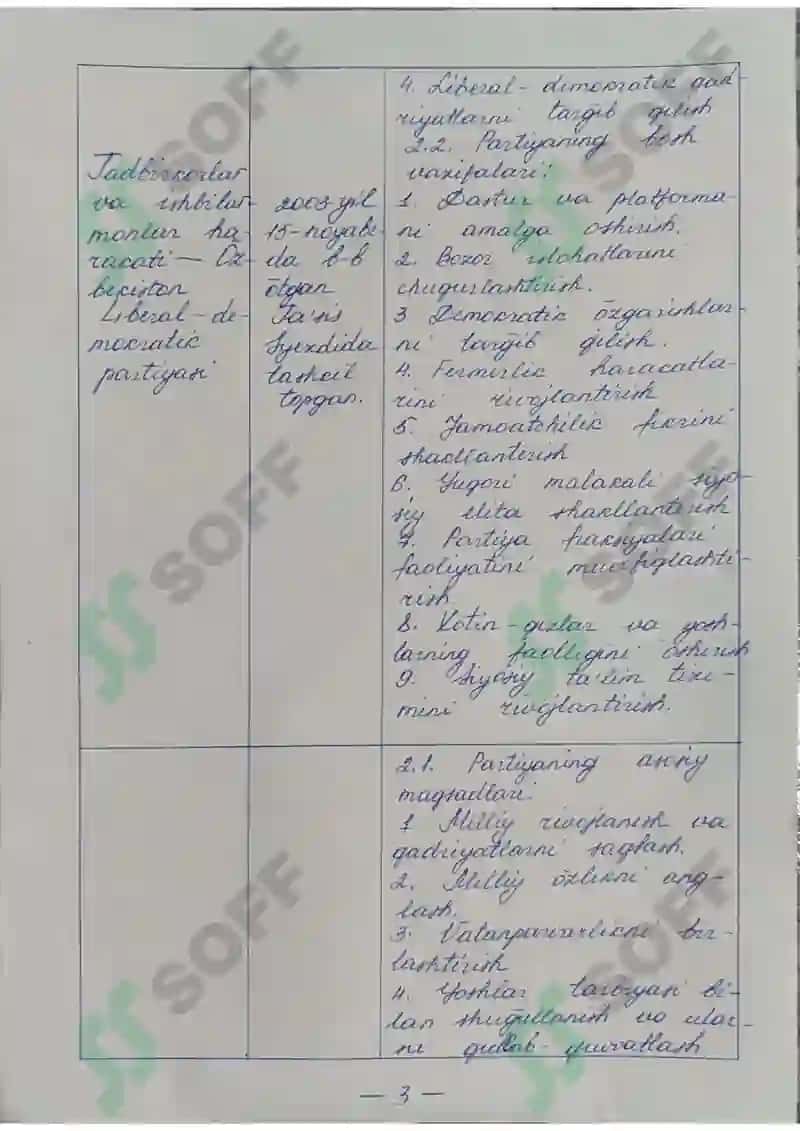 Tadbirkorlar
va ishbilar-
monlar ha-
racati — Öz-
bekiston
Liberal-de-
mokratik
partiyasi
2003-yil
15-noyabr-
da b-b
ötgan
Ta'sis
Syezdida
tashkil
topgan.
4. Liberal-demokratik qad-
riyatlarni targ̃ib qilish
2.2. Partiyaning bosh
vazifalari:
1. Dastur va platforma-
ni amalga oshirish.
2. Bozor islohatlarini
chuqurlashtirish.
3 Demokratik özgarishlar-
ni targ̃ib qilish.
4. Fermerlik haracatla-
rini rivojlantirish
5. Jamoatchilik fikrini
shakllantirish
6. Yuqori malakali siyo-
siy elita shakllantirish
7. Partiya fraksiyalari
faoliyatini muvofiqlashti-
rish.
8. Xotin-qizlar va yosh-
larning faolligini oshirish
9. Siyosiy ta'lim tizi-
mini rivojlantirish.
2.1. Partiyaning asosiy
maqsadlari:
1 Milliy rivojlanish va
qadriyatlarni saqlash.
2. Milliy özlikni ang-
lash.
3. Vatanparvarlikni bir-
lashtirish
4. Yoshlar tarbiyasi bi-
lan shug̃ullanish va ular-
ni qullab-quvvatlash
— 3 —
SOFF
SOFF
SOFF
SOFF
SOFF
SOFF